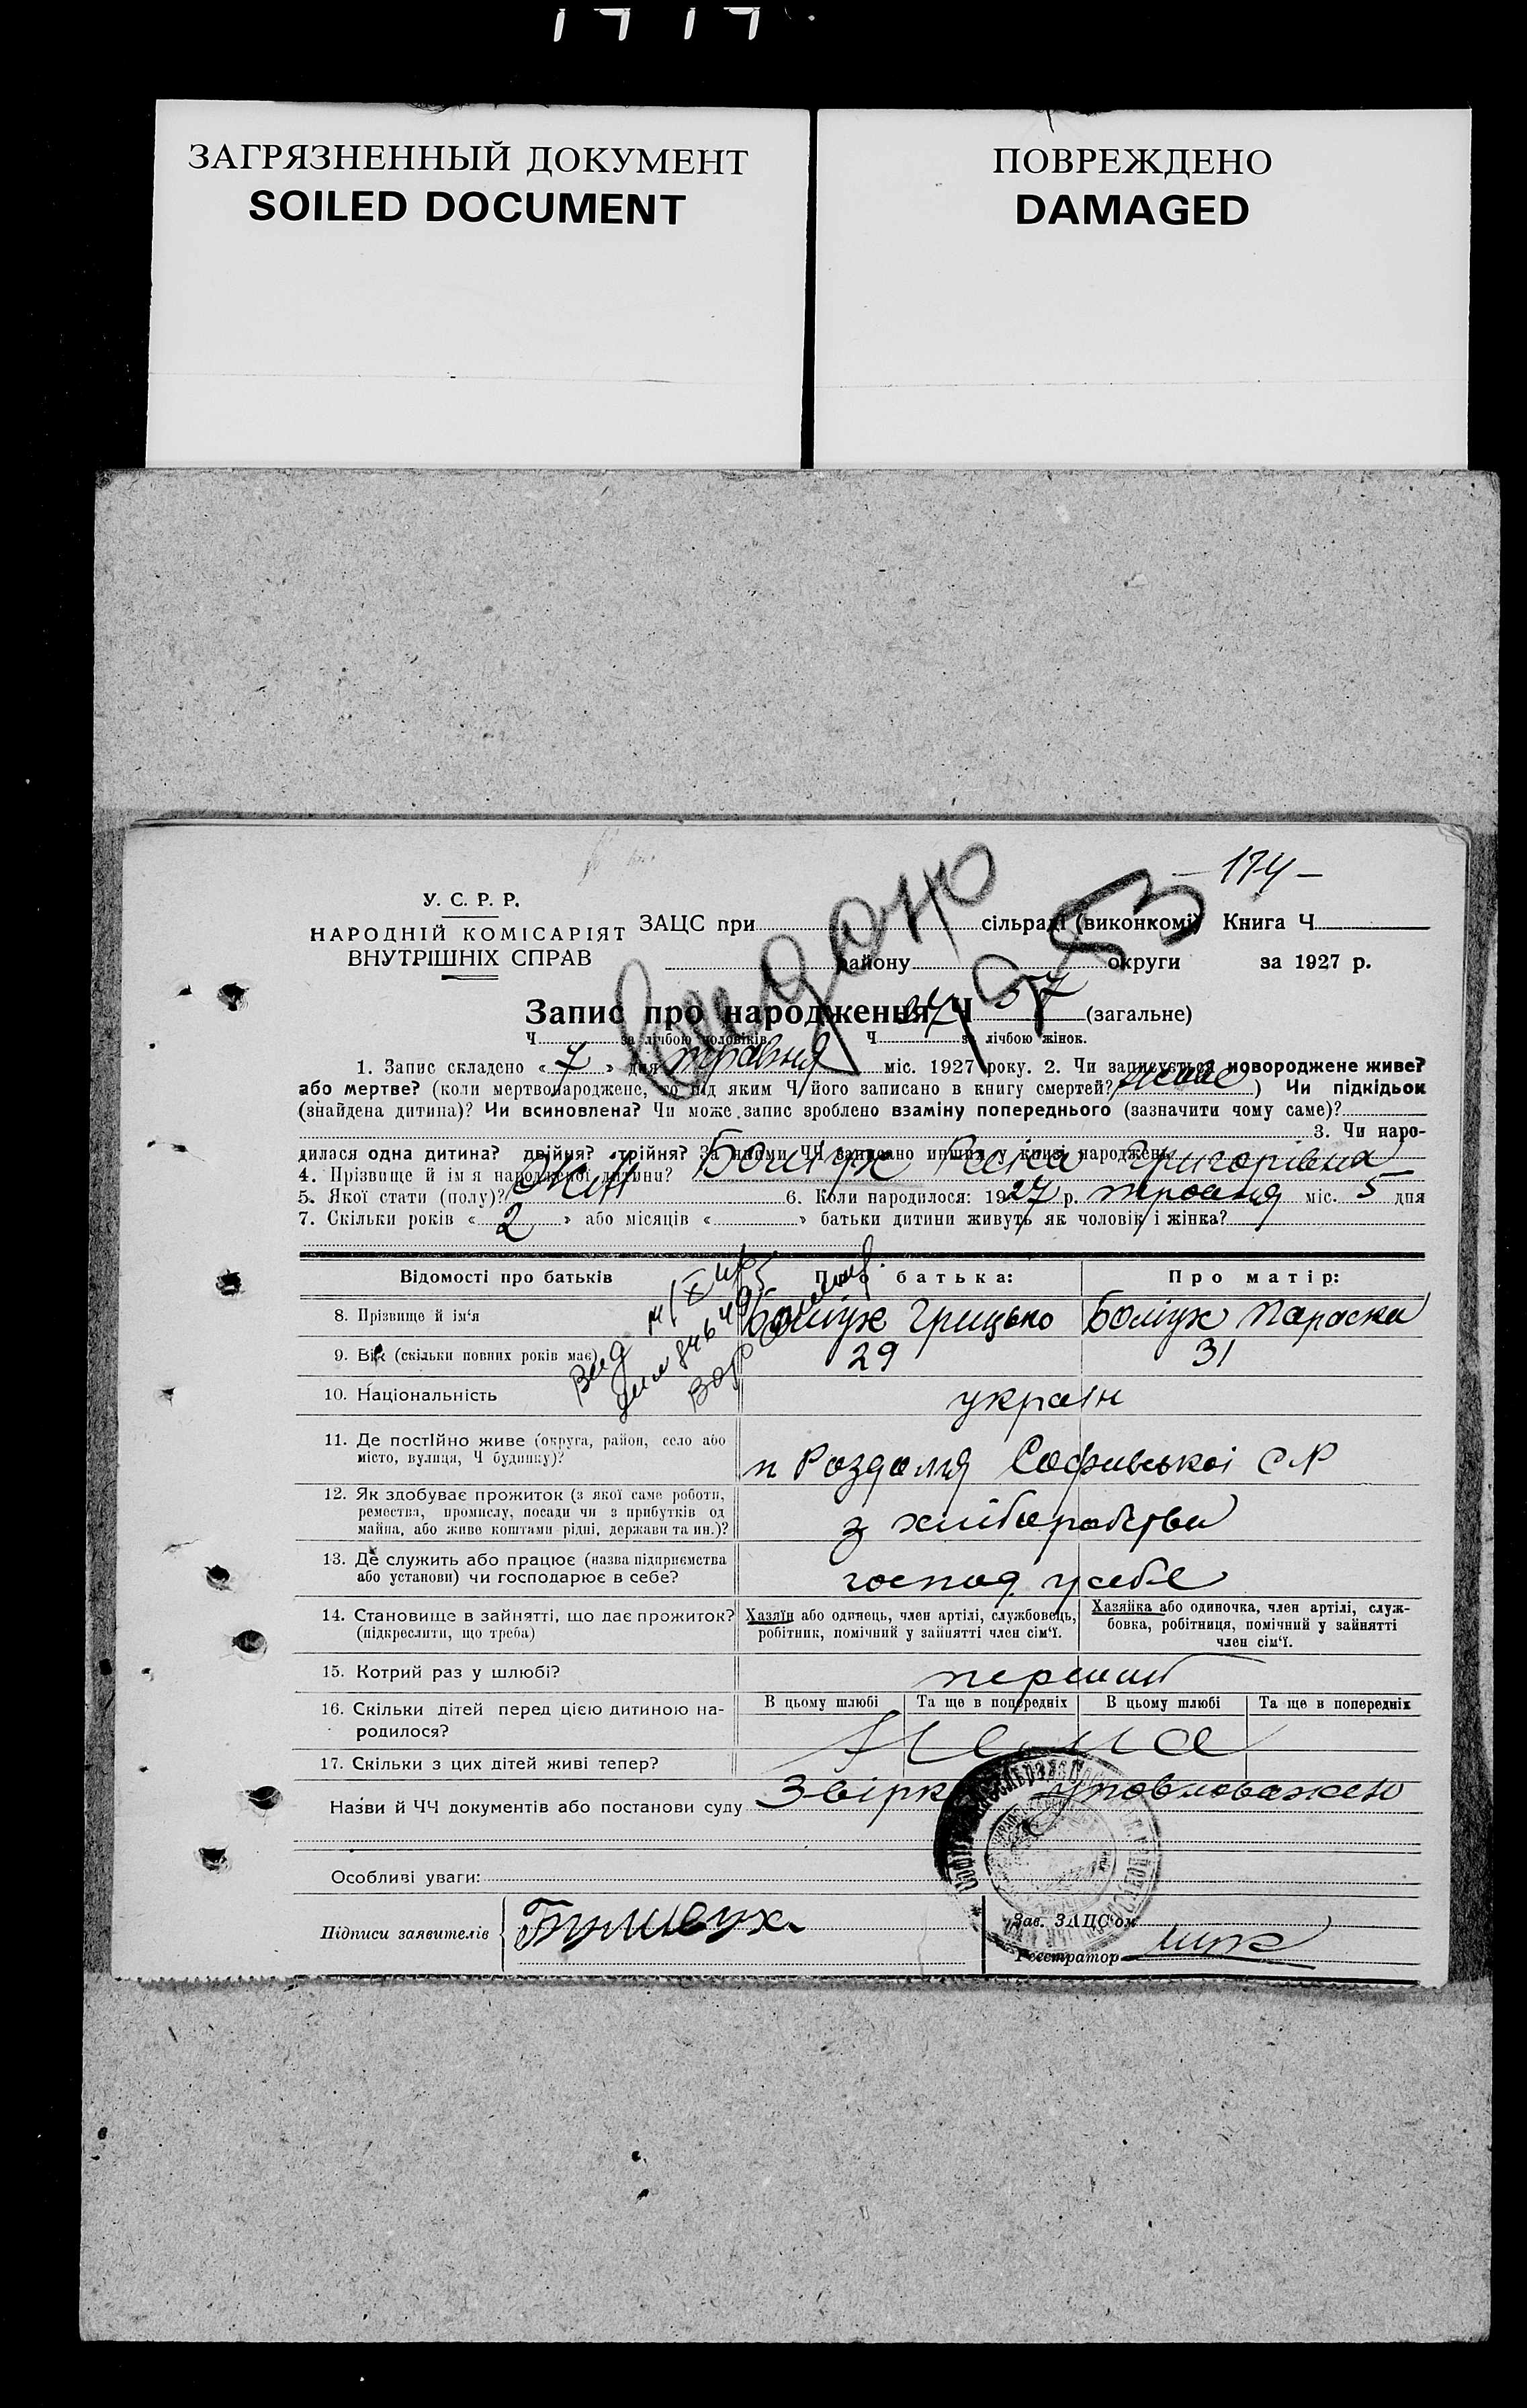 ЗАГРЯЗНЕННЫЙ ДОКУМЕНТ
SOILED DOCUMENT
ПОВРЕЖДЕНО
DAMAGED
- 174 -
У. С. Р. Р.
НАРОДНІЙ КОМІСАРІЯТ
ВНУТРІШНІХ СПРАВ
ЗАЦС при сільраді (виконкомі) Книга Ч
району округи за 1927 р.
Запис про народження Ч 57 (загальне)
Ч за лічбою чоловіків Ч 27 за лічбою жінок.
1. Запис складено « 7 » дня травня міс. 1927 року. 2. Чи записується новороджене живе?
або мертве? (коли мертвонароджене, то під яким Ч його записано в книгу смертей? живе) Чи підкідьок
(знайдена дитина)? Чи всиновлена? Чи може запис зроблено взаміну попереднього (зазначити чому саме)?
3. Чи наро-
дилася одна дитина? двійня? трійня? За якими ЧЧ записано инших у книзі народжень
4. Прізвище й ім'я народженої дитини? Григорівна
5. Якої стати (полу)? жін 6. Коли народилося: 1927 р. травня міс. 5 дня
7. Скільки років « 2 » або місяців « » батьки дитини живуть як чоловік і жінка?
Відомості про батьків Про батька: Про матір:
8. Прізвище й ім'я Грицько Параска
9. Вік (скільки повних років має) 29 31
10. Національність україн
11. Де постійно живе (округа, район, село або
місто, вулиця, Ч будинку)?
п Роздолля Софиівської С Р
12. Як здобуває прожиток (з якої саме роботи,
ремества, промислу, посади чи з прибутків од
майна, або живе коштами рідні, держави та ин.)?
з хліборобства
13. Де служить або працює (назва підприємства
або установи) чи господарює в себе?
господ у себе
14. Становище в зайнятті, що дає прожиток?
(підкреслити, що треба)
Хазяїн або одинець, член артілі, службовець,
робітник, помічний у зайнятті член сім'ї.
Хазяйка або одиночка, член артілі, служ-
бовка, робітниця, помічний у зайнятті
член сім'ї.
15. Котрий раз у шлюбі? перший
16. Скільки дітей перед цією дитиною на-
родилося?
В цьому шлюбі Та ще в попередніх В цьому шлюбі Та ще в попередніх
Нема
17. Скільки з цих дітей живі тепер?
Назви й ЧЧ документів або постанови суду Звірк уповноважен
Особливі уваги:
Підписи заявителів
Зав. ЗАЦС'ом
Реєстратор